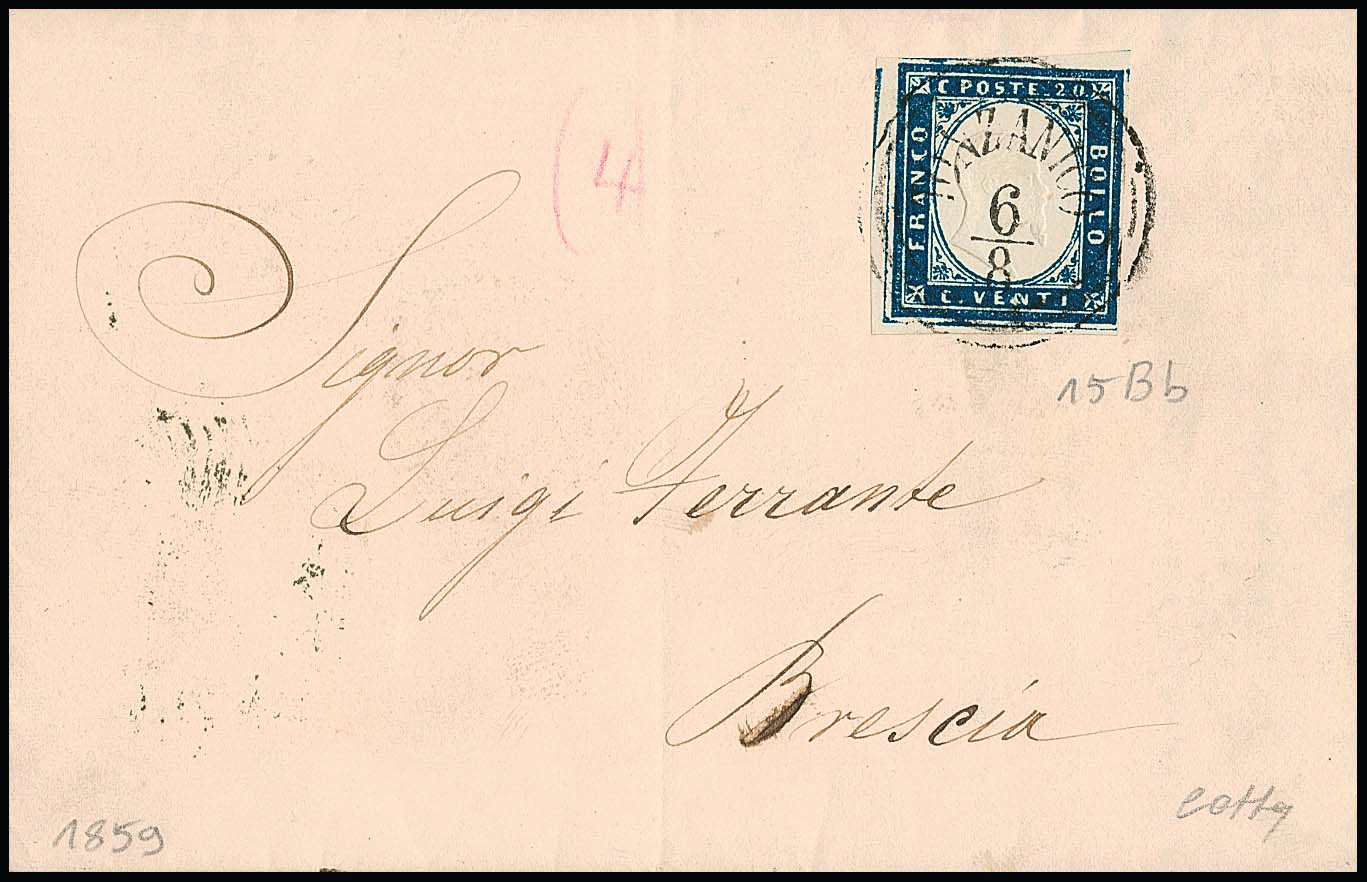 (4)
C POSTE. 20
FRANCO
BOLLO
C. VENTI
6
8
15Bb
Signor
Luigi Ferrante
Brescia
1859